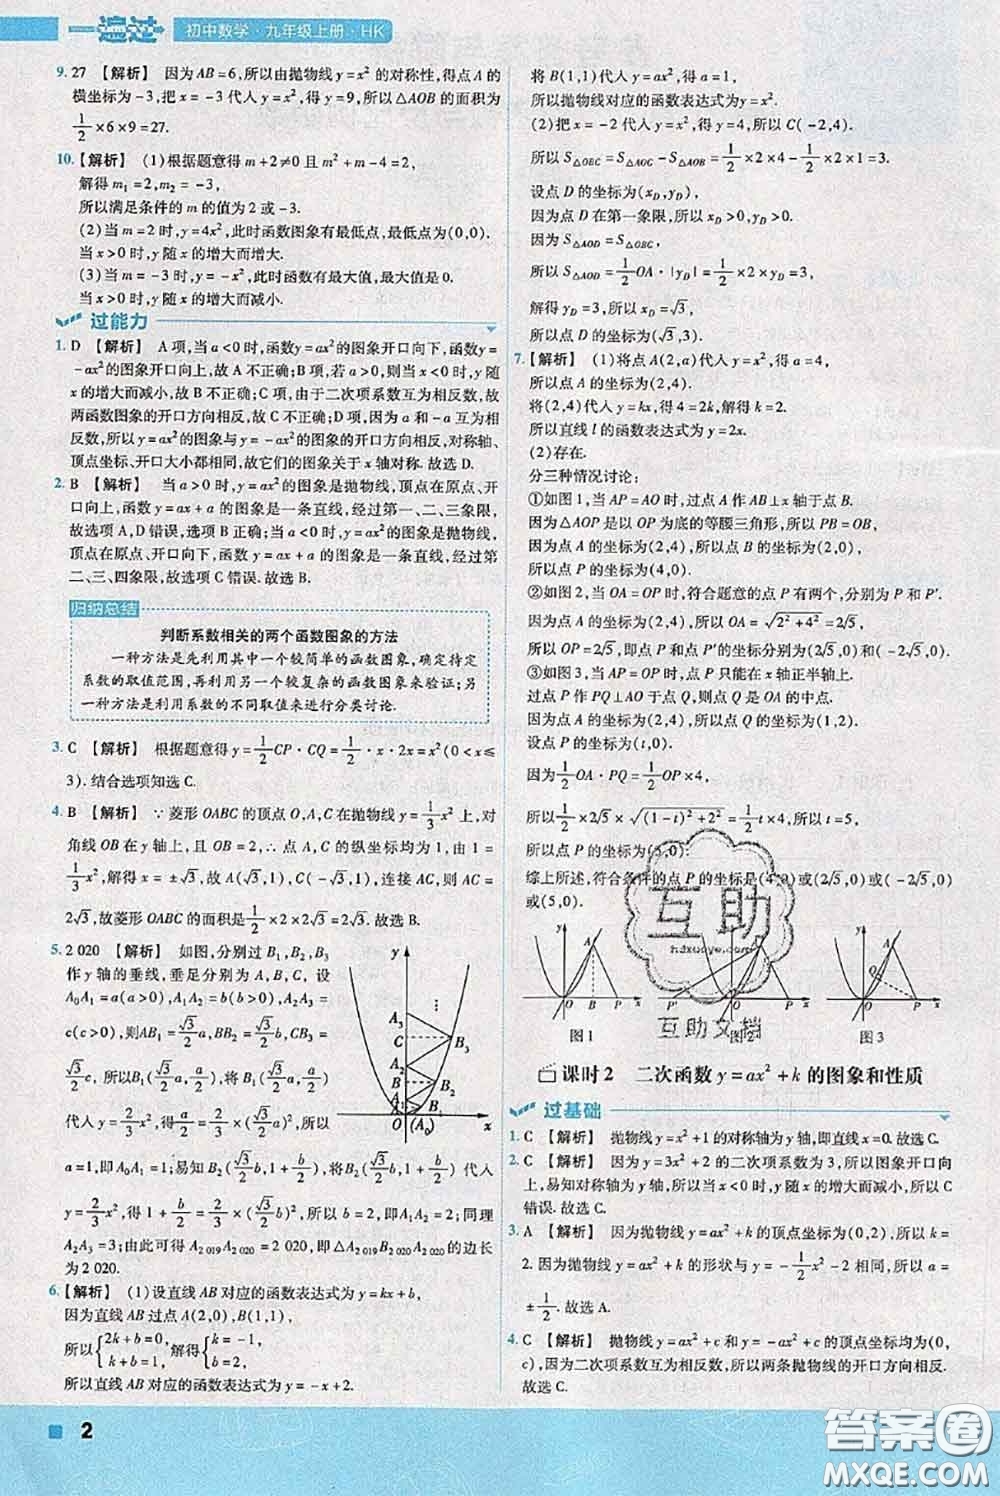 一遍过 初中数学·九年级上册·HK
9. 27 【解析】 因为AB=6,所以由抛物线y=x²的对称性,得点A的
横坐标为-3,把x=-3代入y=x²,得y=9,所以△AOB的面积为
1/2×6×9=27.
10. 【解析】 (1)根据题意得m+2≠0且m²+m-4=2,
解得m₁=2,m₂=-3,
所以满足条件的m的值为2或-3.
(2)当m=2时,y=4x²,此时函数图象有最低点,最低点为(0,0).
当x>0时,y随x的增大而增大.
(3)当m=-3时,y=-x²,此时函数有最大值,最大值为0.
当x>0时,y随x的增大而减小.
过能力
1. D 【解析】 A项,当a<0时,函数y=ax²的图象开口向下,函数y=
-ax²的图象开口向上,故A不正确;B项,若a>0,则当x<0时,y随
x的增大而减小,故B不正确;C项,由于二次项系数互为相反数,故
两函数图象的开口方向相反,故C不正确;D项,因为a和-a互为相
反数,所以y=ax²的图象与y=-ax²的图象的开口方向相反,对称轴、
顶点坐标、开口大小都相同,故它们的图象关于x轴对称.故选D.
2. B 【解析】 当a>0时,函数y=ax²的图象是抛物线,顶点在原点、开
口向上,函数y=ax+a的图象是一条直线,经过第一、二、三象限,
故选项A,D错误,选项B正确;当a<0时,函数y=ax²的图象是抛物线,
顶点在原点、开口向下,函数y=ax+a的图象是一条直线,经过第
二、三、四象限,故选项C错误.故选B.
归纳总结
判断系数相关的两个函数图象的方法
一种方法是先利用其中一个较简单的函数图象,确定待定
系数的取值范围,再利用另一个较复杂的函数图象来验证;另
一种方法是利用系数的不同取值来进行分类讨论.
3. C 【解析】 根据题意得y=1/2CP·CQ=1/2·x·2x=x²(0<x≤
3).结合选项知选C.
4. B 【解析】 ∵菱形OABC的顶点O,A,C在抛物线y=1/3x²上,对
角线OB在y轴上,且OB=2,∴点A,C的纵坐标均为1,由1=
1/3x²,解得x=±√3,故A(√3,1),C(-√3,1),连接AC,则AC=
2√3,故菱形OABC的面积是1/2×2×2√3=2√3.故选B.
5. 2 020 【解析】 如图,分别过B₁,B₂,B₃
作y轴的垂线,垂足分别为A,B,C,设
A₀A₁=a(a>0),A₁A₂=b(b>0),A₂A₃=
c(c>0),则AB₁=√3/2a,BB₂=√3/2b,CB₃=
√3/2c,所以B₁(√3/2a,a/2),将(√3/2a,a/2)
代入y=2/3x²,得a/2=2/3×(√3/2a)²,解得
a=1,即A₀A₁=1;所以B₂(√3/2b,1+b/2),将(√3/2b,1+b/2)代入
y=2/3x²,得1+b/2=2/3×(√3/2b)²,所以b=2,即A₁A₂=2;同理
A₂A₃=3;由此可得A₂₀₁₉A₂₀₂₀=2 020,即△A₂₀₁₉B₂₀₂₀A₂₀₂₀的边长
为2 020.
y A₃ C B₃ A₂ B B₂ A₁ A B₁ O (A₀) x
6. 【解析】 (1)设直线AB对应的函数表达式为y=kx+b,
因为直线AB过点A(2,0),B(1,1),
所以{2k+b=0, k+b=1, 解得{k=-1, b=2,
所以直线AB对应的函数表达式为y=-x+2.
将B(1,1)代入y=ax²,得a=1,
所以抛物线对应的函数表达式为y=x².
(2)把x=-2代入y=x²,得y=4,所以C(-2,4).
所以S△OBC=S△AOC-S△AOB=1/2×2×4-1/2×2×1=3.
设点D的坐标为(x_D,y_D),
因为点D在第一象限,所以x_D>0,y_D>0.
因为S△AOD=S△OBC,
所以S△AOD=1/2OA·|y_D|=1/2×2×y_D=3,
解得y_D=3,所以x_D=√3,
所以点D的坐标为(√3,3).
7. 【解析】 (1)将点A(2,a)代入y=x²,得a=4,
所以点A的坐标为(2,4).
将(2,4)代入y=kx,得4=2k,解得k=2.
所以直线l的函数表达式为y=2x.
(2)存在.
分三种情况讨论:
①如图1,当AP=AO时,过点A作AB⊥x轴于点B.
因为△AOP是以OP为底的等腰三角形,所以PB=OB,
因为点A的坐标为(2,4),所以点B的坐标为(2,0),
所以点P的坐标为(4,0).
②如图2,当OA=OP时,符合题意的点P有两个,分别为P和P′.
因为点A的坐标为(2,4),所以OA=√(2²+4²)=2√5,
所以OP=2√5,即点P和点P′的坐标分别为(2√5,0)和(-2√5,0).
③如图3,当OP=AP时,点P只能在x轴正半轴上.
过点P作PQ⊥AO于点Q,则点Q是OA的中点.
因为点A的坐标为(2,4),所以点Q的坐标为(1,2).
设点P的坐标为(t,0).
因为1/2OA·PQ=1/2OP×4,
所以1/2×2√5×√((1-t)²+2²)=1/2t×4,所以t=5,
所以点P的坐标为(5,0).
综上所述,符合条件的点P的坐标是(4,0)或(2√5,0)或(-2√5,0)
或(5,0).
y A O B P x
图1
y A P′ O P x
图2
y A Q O P x
图3
互助
hdxuoye.com
互助文档
课时2 二次函数y=ax²+k的图象和性质
过基础
1. C 【解析】 抛物线y=x²+1的对称轴为y轴,即直线x=0.故选C.
2. C 【解析】 因为y=3x²+2的二次项系数为3,所以图象开口向
上,易知对称轴为y轴,所以当x<0时,y随x的增大而减小,所以C
错误.故选C.
3. A 【解析】 因为抛物线y=ax²+k的顶点坐标为(0,2),所以k=
2.因为抛物线y=ax²+k的形状与y=-1/2x²-2相同,所以a=
±1/2.故选A.
4. C 【解析】 抛物线y=ax²+c和y=-ax²+c的顶点坐标均为(0,
c),因为二次项系数互为相反数,所以两条抛物线的开口方向相反.
故选C.
2
答案圈
MXQE.COM